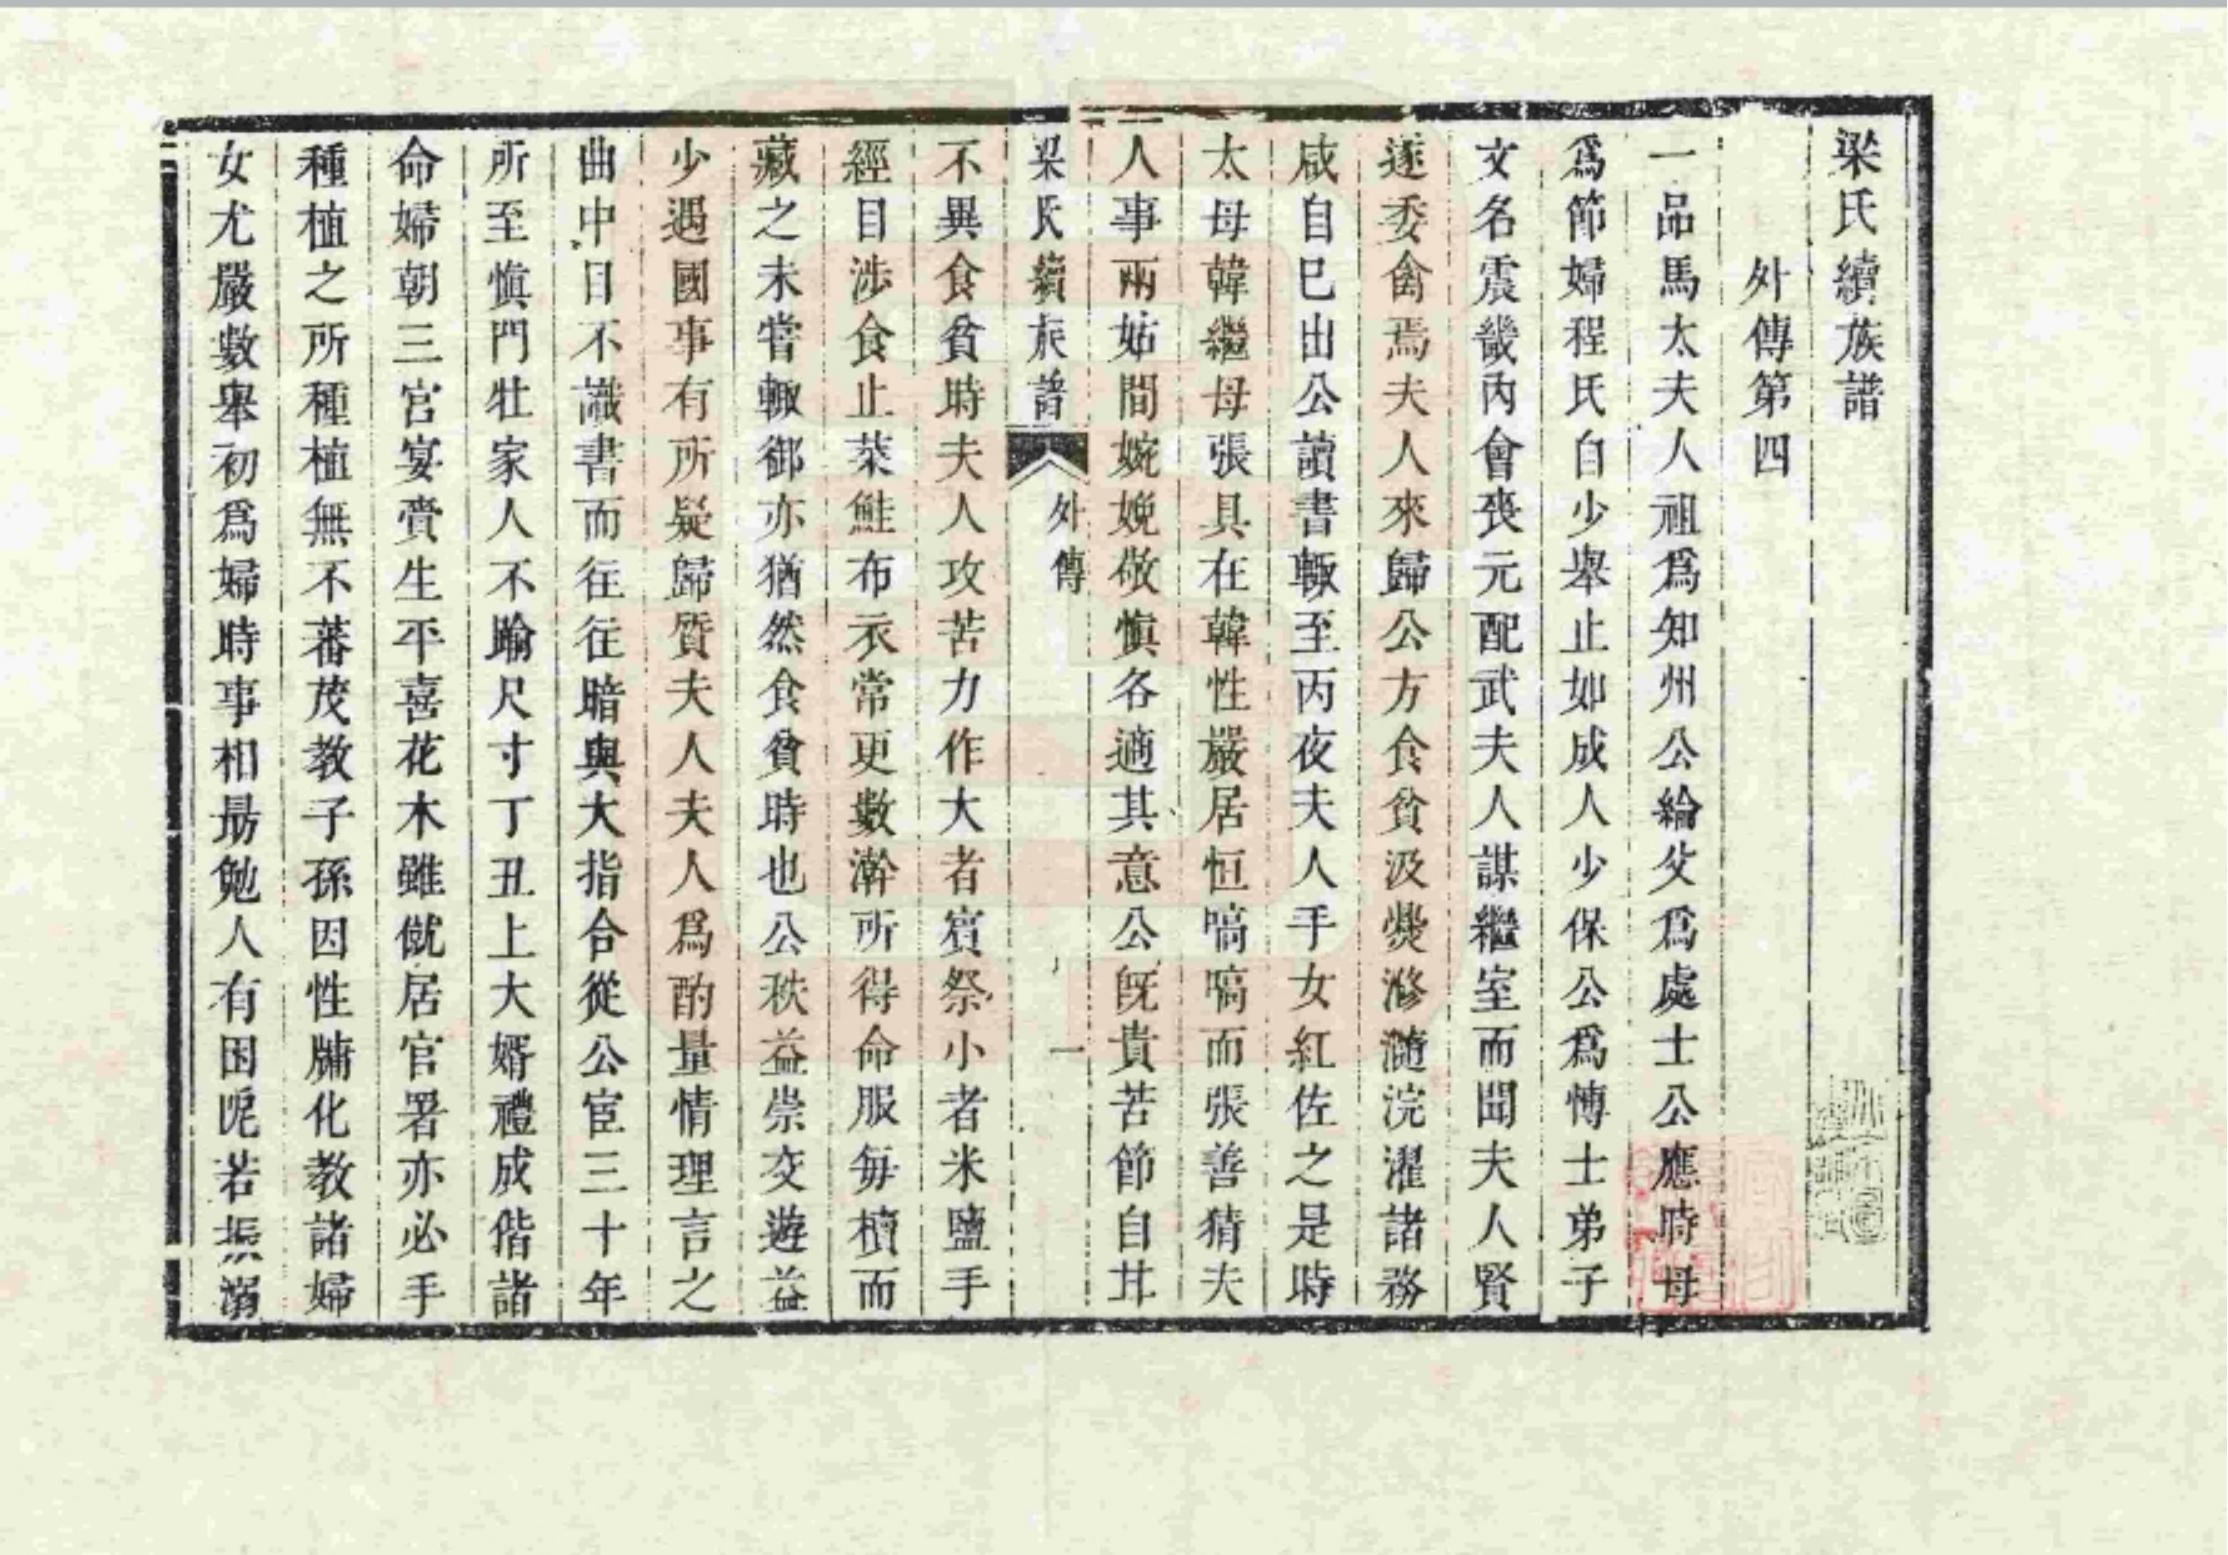 梁氏續族譜
外傳第四
一品馬太夫人祖爲知州公綸父爲處士公應時母
爲節婦程氏自少舉止如成人少保公爲博士弟子
文名震畿內會喪元配武夫人謀繼室而聞夫人賢
遂委禽焉夫人來歸公方食貧汲爨滫瀡浣濯諸務
咸自已出公讀書輙至丙夜夫人手女紅佐之是時
太母韓繼母張具在韓性嚴居恒嗃嗃而張善猜夫
人事兩姑間婉娩敬慎各適其意公既貴苦節自甘
梁氏續族譜 外傳 一
不異食貧時夫人攻苦力作大者賓祭小者米鹽手
經目涉食止菜鮭布衣常更數澣所得命服毎櫝而
藏之未嘗輙御亦猶然食貧時也公秩益崇交遊益
少遇國事有所疑歸質夫人夫人爲酌量情理言之
曲中目不識書而往往暗與大指合從公宦三十年
所至慎門壯家人不踰尺寸丁丑上大婚禮成偕諸
命婦朝三宮宴賚生平喜花木雖僦居官署亦必手
種植之所種植無不蕃茂教子孫因性牖化教諸婦
女尤嚴數舉初爲婦時事相勗勉人有困阨若振溺